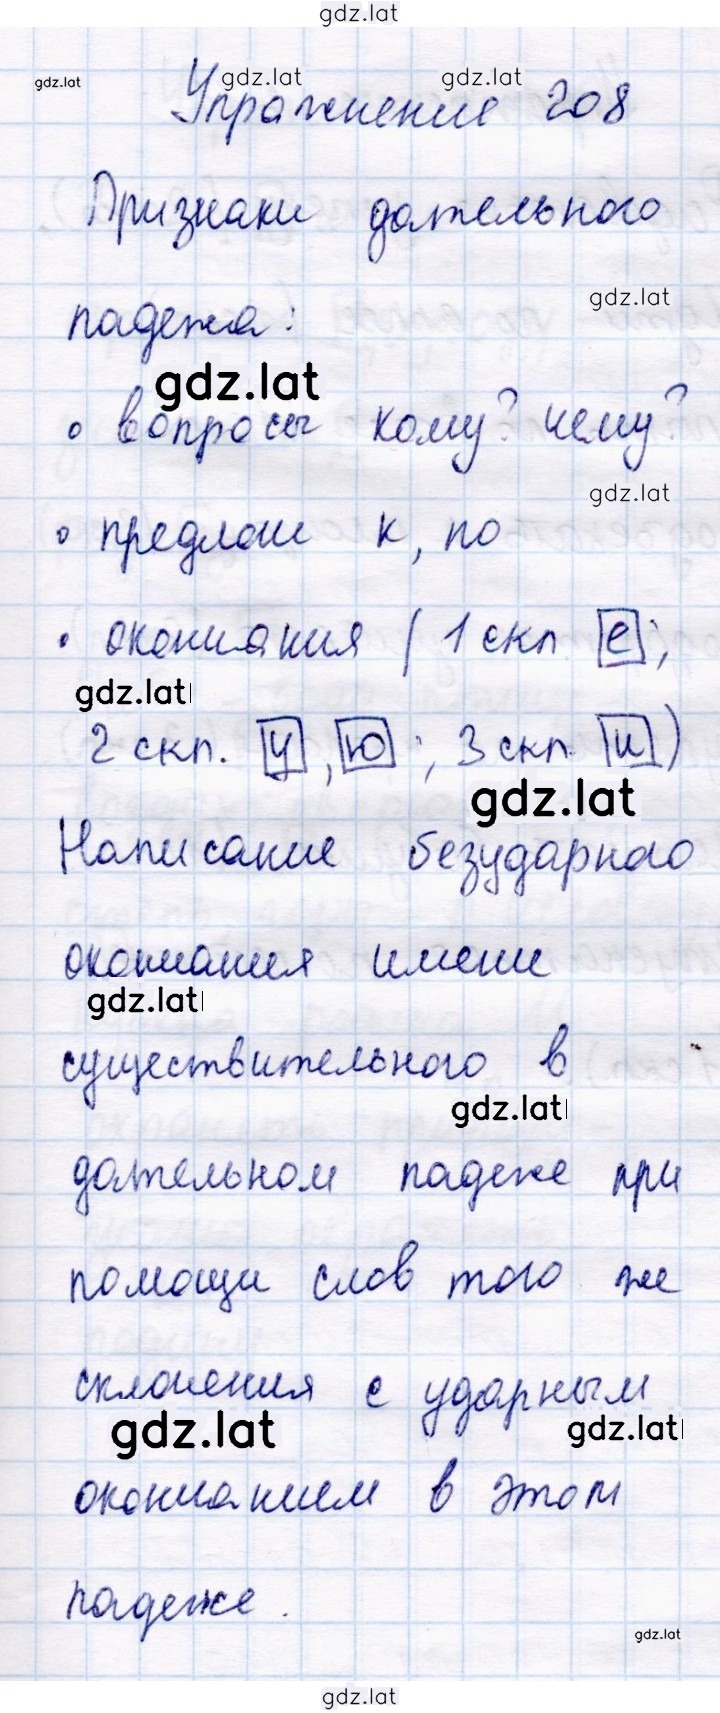 gdz.lat
gdz.lat gdz.lat gdz.lat
Упражнение 208
Признаки дательного
gdz.lat
падежа:
gdz.lat
• вопросы кому? чему?
gdz.lat
• предлоги к, по
• окончания (1 скл. е;
gdz.lat
2 скл. у, ю; 3 скл. и)
gdz.lat
Написание безударного
окончания имени
gdz.lat
существительного в
gdz.lat
дательном падеже при
помощи слов того же
склонения с ударным
gdz.lat gdz.lat
окончанием в этом
падеже.
gdz.lat
gdz.lat